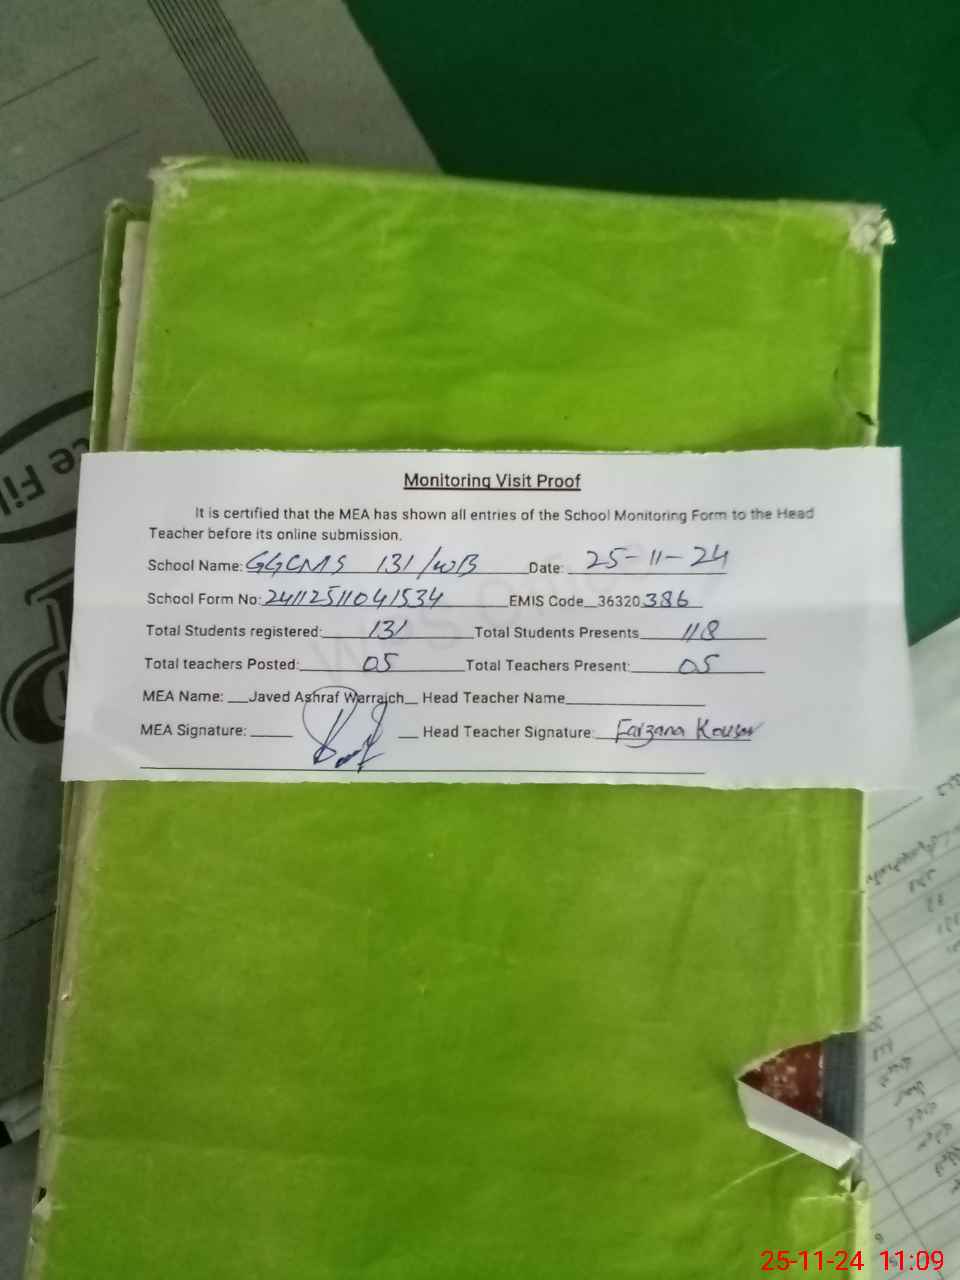 Monitoring Visit Proof
It is certified that the MEA has shown all entries of the School Monitoring Form to the Head
Teacher before its online submission.
School Name: GGCMS 131/WB Date: 25-11-24
School Form No: 24112511041534 EMIS Code 36320386
Total Students registered: 131 Total Students Presents 118
Total teachers Posted: 05 Total Teachers Present: 05
MEA Name: Javed Ashraf Warraich Head Teacher Name
MEA Signature: Head Teacher Signature: Farzana Kousar
25-11-24 11:09